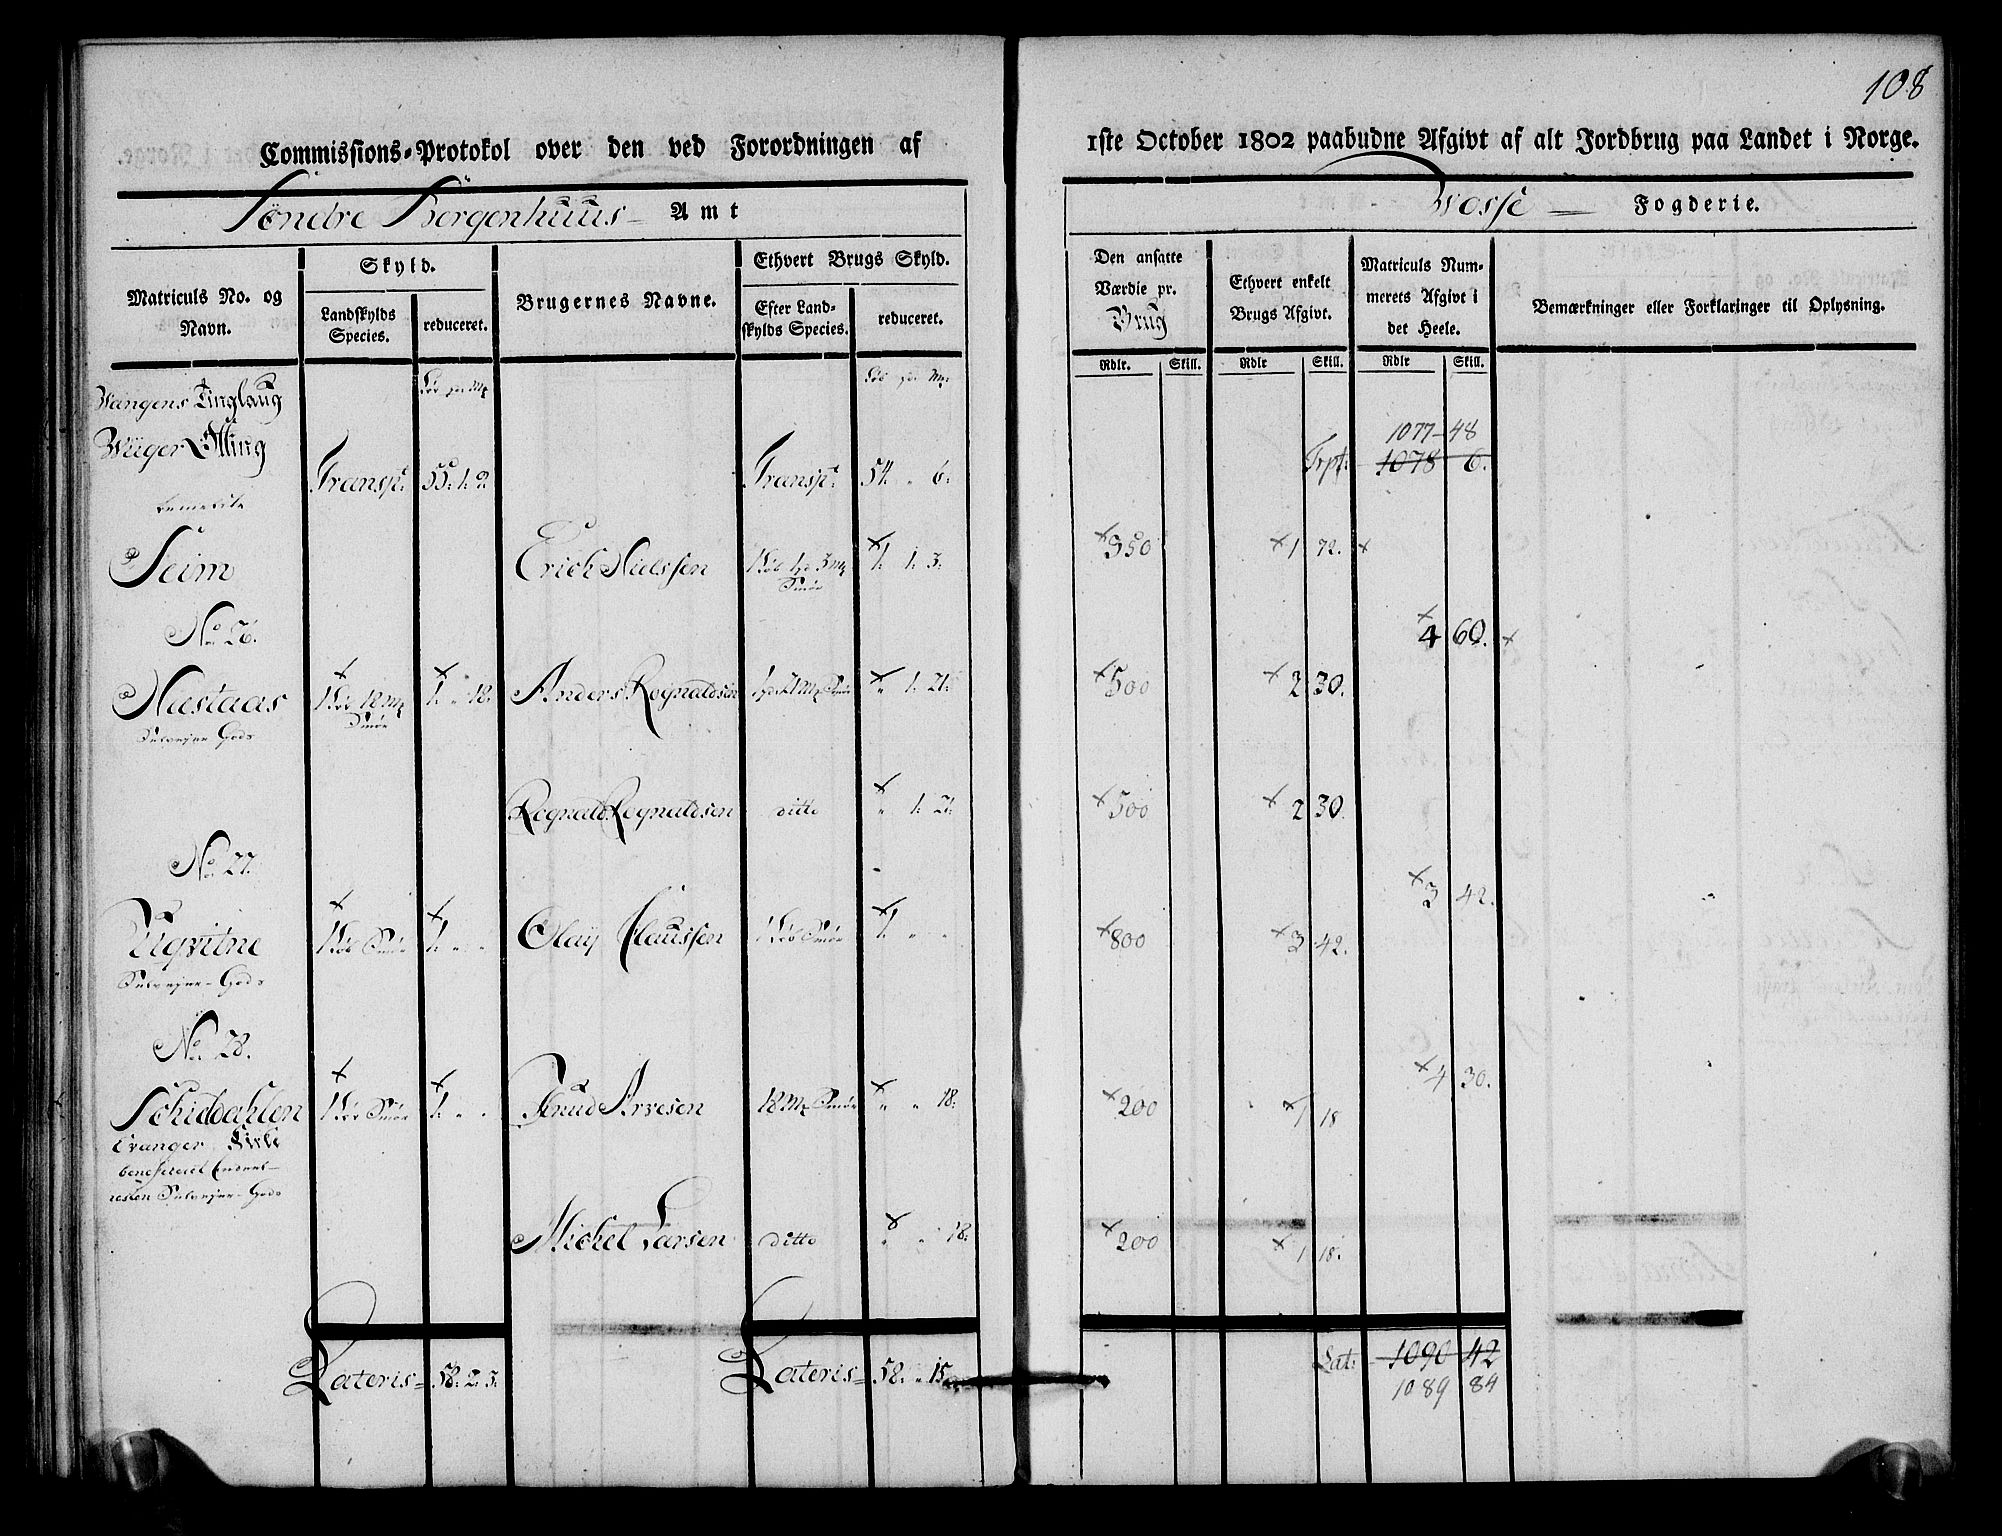 108
Commissions-Protokol over den ved Forordningen af
1ste October 1802 paabudne Afgivt af alt Jordbrug paa Landet i Norge.
Søndre Bergenhuus Amt
Vosse Fogderie.
Matriculs No. og Navn.
Skyld.
Landskylds Species.
reduceret.
Brugernes Navne.
Ethvert Brugs Skyld.
Efter Landskylds Species.
reduceret.
Den ansatte Værdie pr. Brug
Ethvert enkelt Brugs Afgivt.
Matriculs Nummerets Afgivt i det Heele.
Bemærkninger eller Forklaringer til Oplysning.
Rdlr. Skill. Rdlr Skill. Rdlr Skill.
Wangens Tinglaug
1077 - 48
Otting Transpt: 55. 1. 2. Transpt: 54. " 6. Trpt: 1078 6.
Seim Erich Nielssen 1. 1. 3. 350 1 72.
No. 26. 4 60.
Næstaas 1. " 18. Anders Rognaldsen " 1. 21. 500 2 30.
Selvejer Gods
Rognald Rognaldsen ditto " 1. 21. 500 2 30.
No. 27. 3 42.
1 Løb Smør 1. " " Olav Claussen 1 Løb Smør 1. " " 800 3 42.
Selvejer-Gods
No. 28. 4 30.
1 Løb Smør 1. " " Knud Arvesen 18 Mk Smør " " 18. 200 1 18
Evanger Kirke
Selvejer-Gods
Michel Larsen ditto " " 18. 200 1 18.
Lateris 58. 2. 3. Lateris 58. " 15. Lat: 1090 42
1089 84